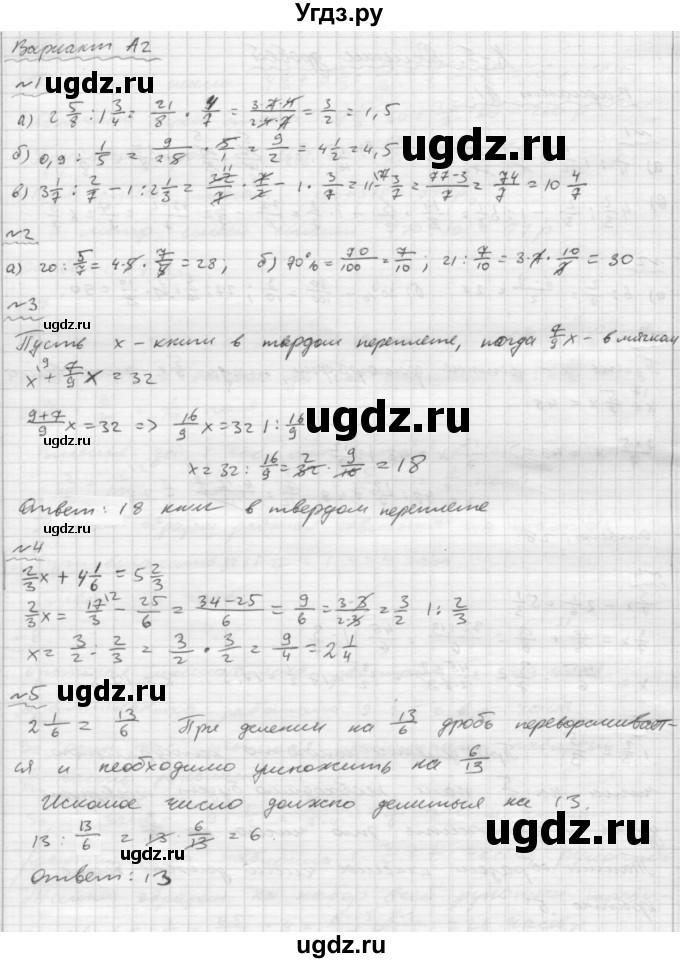 Угдз.ру
Вариант А2
ugdz.ru
№1
а) 2 5/8 : 1 3/4 = 21/8 · 4/7 = 3·7·4/2·4·7 = 3/2 = 1,5
ugdz.ru
б) 0,9 : 1/5 = 9/2·5 · 5/1 = 9/2 = 4 1/2 = 4,5
ugdz.ru
в) 3 1/7 : 2/7 - 1 : 2 1/3 = 22/7 · 7/2 - 1 · 3/7 = 11 - 3/7 = 77-3/7 = 74/7 = 10 4/7
ugdz.ru
№2
а) 20 : 5/7 = 4·5 · 7/5 = 28; б) 70% = 70/100 = 7/10; 21 : 7/10 = 3·7 · 10/7 = 30
№3
ugdz.ru
ugdz.ru
Пусть x - книги в твердом переплете, тогда 7/9 x - в мягком
x + 7/9 x = 32
ugdz.ru
9+7/9 x = 32 => 16/9 x = 32 | : 16/9
ugdz.ru
x = 32 : 16/9 = 32 · 9/16 = 18
Ответ: 18 книг в твердом переплете
ugdz.ru
ugdz.ru
№4
2/3 x + 4 1/6 = 5 2/3
2/3 x = 17/3 - 25/6 = 34-25/6 = 9/6 = 3·3/2·3 = 3/2 | : 2/3
ugdz.ru
x = 3/2 : 2/3 = 3/2 · 3/2 = 9/4 = 2 1/4
№5
ugdz.ru
2 1/6 = 13/6 При делении на 13/6 дробь переворачивает-
ся и необходимо умножить на 6/13
Искомое число должно делиться на 13.
13 : 13/6 = 13 · 6/13 = 6.
ugdz.ru
ugdz.ru
Ответ: 13
ugdz.ru